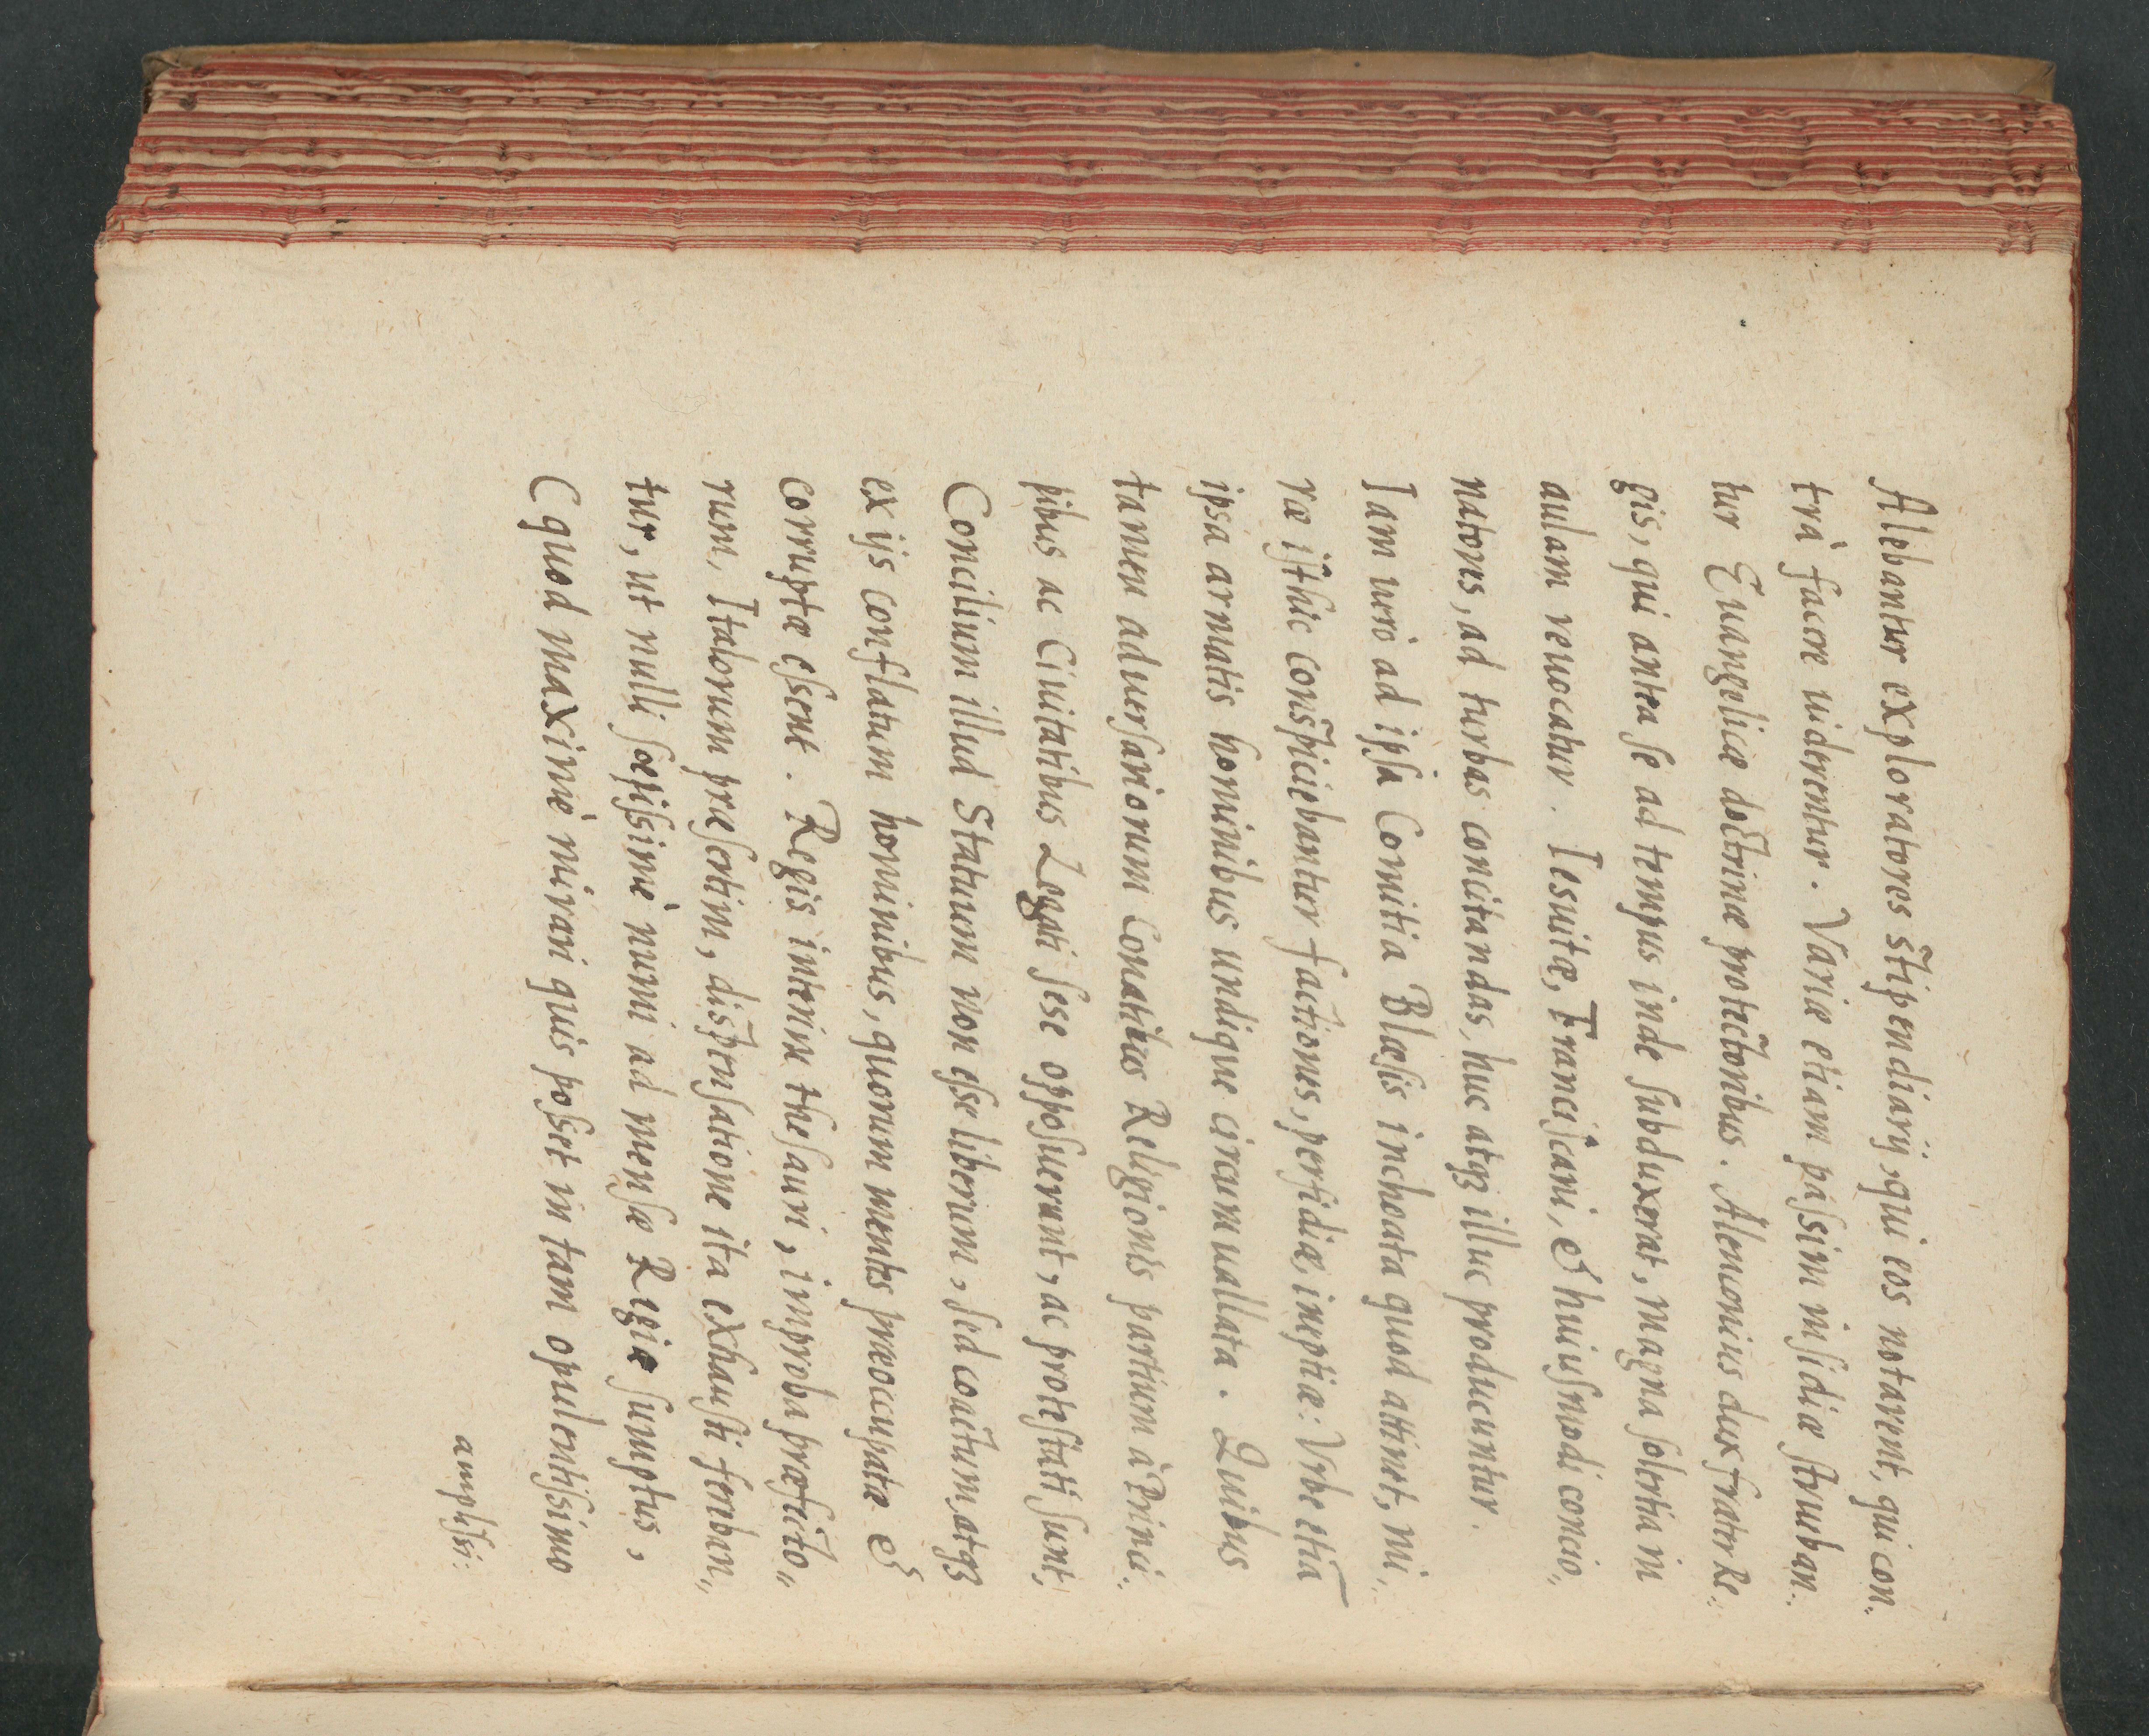 Alebantur exploratores stipendiarij, qui eos notarent, qui con:
trà facere uiderentur. Variæ etiam passim insidiæ struban:
tur Euangelicæ doctrinæ protectoribus. Alenconius dux frater Re:
gis, qui antea se ad tempus inde subduxerat, magna solertia in
aulam reuocatur. Iesuitæ, Franciscani, & huiusmodi concio„
natores, ad turbas concitandas, huc atqꝫ illuc producuntur.
Iam uerò ad ipsa Comitia Blæsis inchoata quod attinet, mi„
ræ isthic conspiciebantur factiones, perfidiæ, ineptiæ: Vrbe etiā
ipsa armatis hominibus undique circumuallata. Quibus
tamen aduersariorum Conatibus Religionis partium à Princi:
pibus ac Ciuitatibus Legati sese opposuerunt, ac protestati sunt,
Concilium illud Statuum non esse liberum, sed coactum, atqꝫ
ex ijs conflatum hominibus, quorum mentes præoccupatæ &
corruptæ essent. Regis interim thesauri, improba præfecto„
rum, Italorum presertim, dispensatione ita exhausti fereban„
tur, ut nulli sæpissimè numi ad mensæ Regiæ sumptus,
(quod maximè mirari quis posset in tam opulentissimo
amplissi: